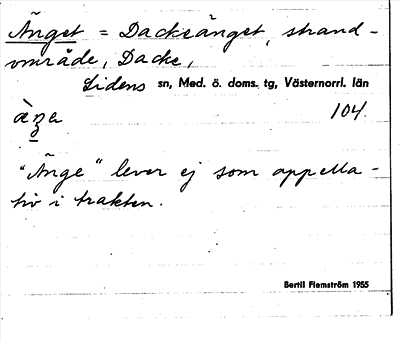 Änget = Dackeänget, strand-
område, Dacke,
Lidens sn, Med. ö. doms. tg, Västernorrl. län
104.
"Änge" lever ej som appella-
tiv i trakten.
Bertil Flemström 1955